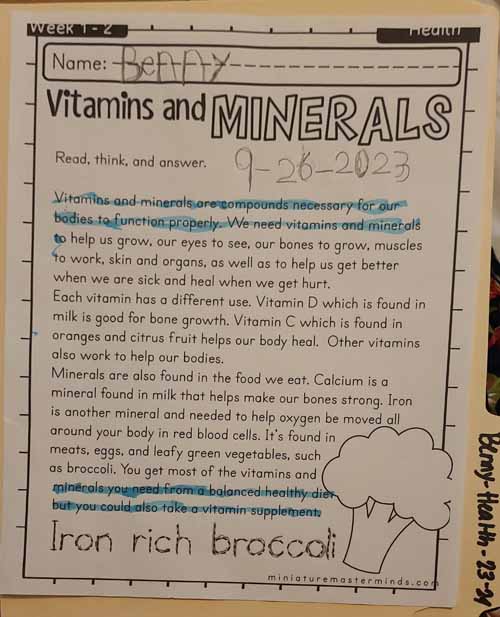 Week 1 - 2
Health
Name: Benny
Vitamins and MINERALS
Read, think, and answer.
9-26-2023
Vitamins and minerals are compounds necessary for our
bodies to function properly. We need vitamins and minerals
to help us grow, our eyes to see, our bones to grow, muscles
to work, skin and organs, as well as to help us get better
when we are sick and heal when we get hurt.
Each vitamin has a different use. Vitamin D which is found in
milk is good for bone growth. Vitamin C which is found in
oranges and citrus fruit helps our body heal. Other vitamins
also work to help our bodies.
Minerals are also found in the food we eat. Calcium is a
mineral found in milk that helps make our bones strong. Iron
is another mineral and needed to help oxygen be moved all
around your body in red blood cells. It's found in
meats, eggs, and leafy green vegetables, such
as broccoli. You get most of the vitamins and
minerals you need from a balanced healthy diet
but you could also take a vitamin supplement.
Iron rich broccoli
miniaturemasterminds.com
Benny-Health-23-24